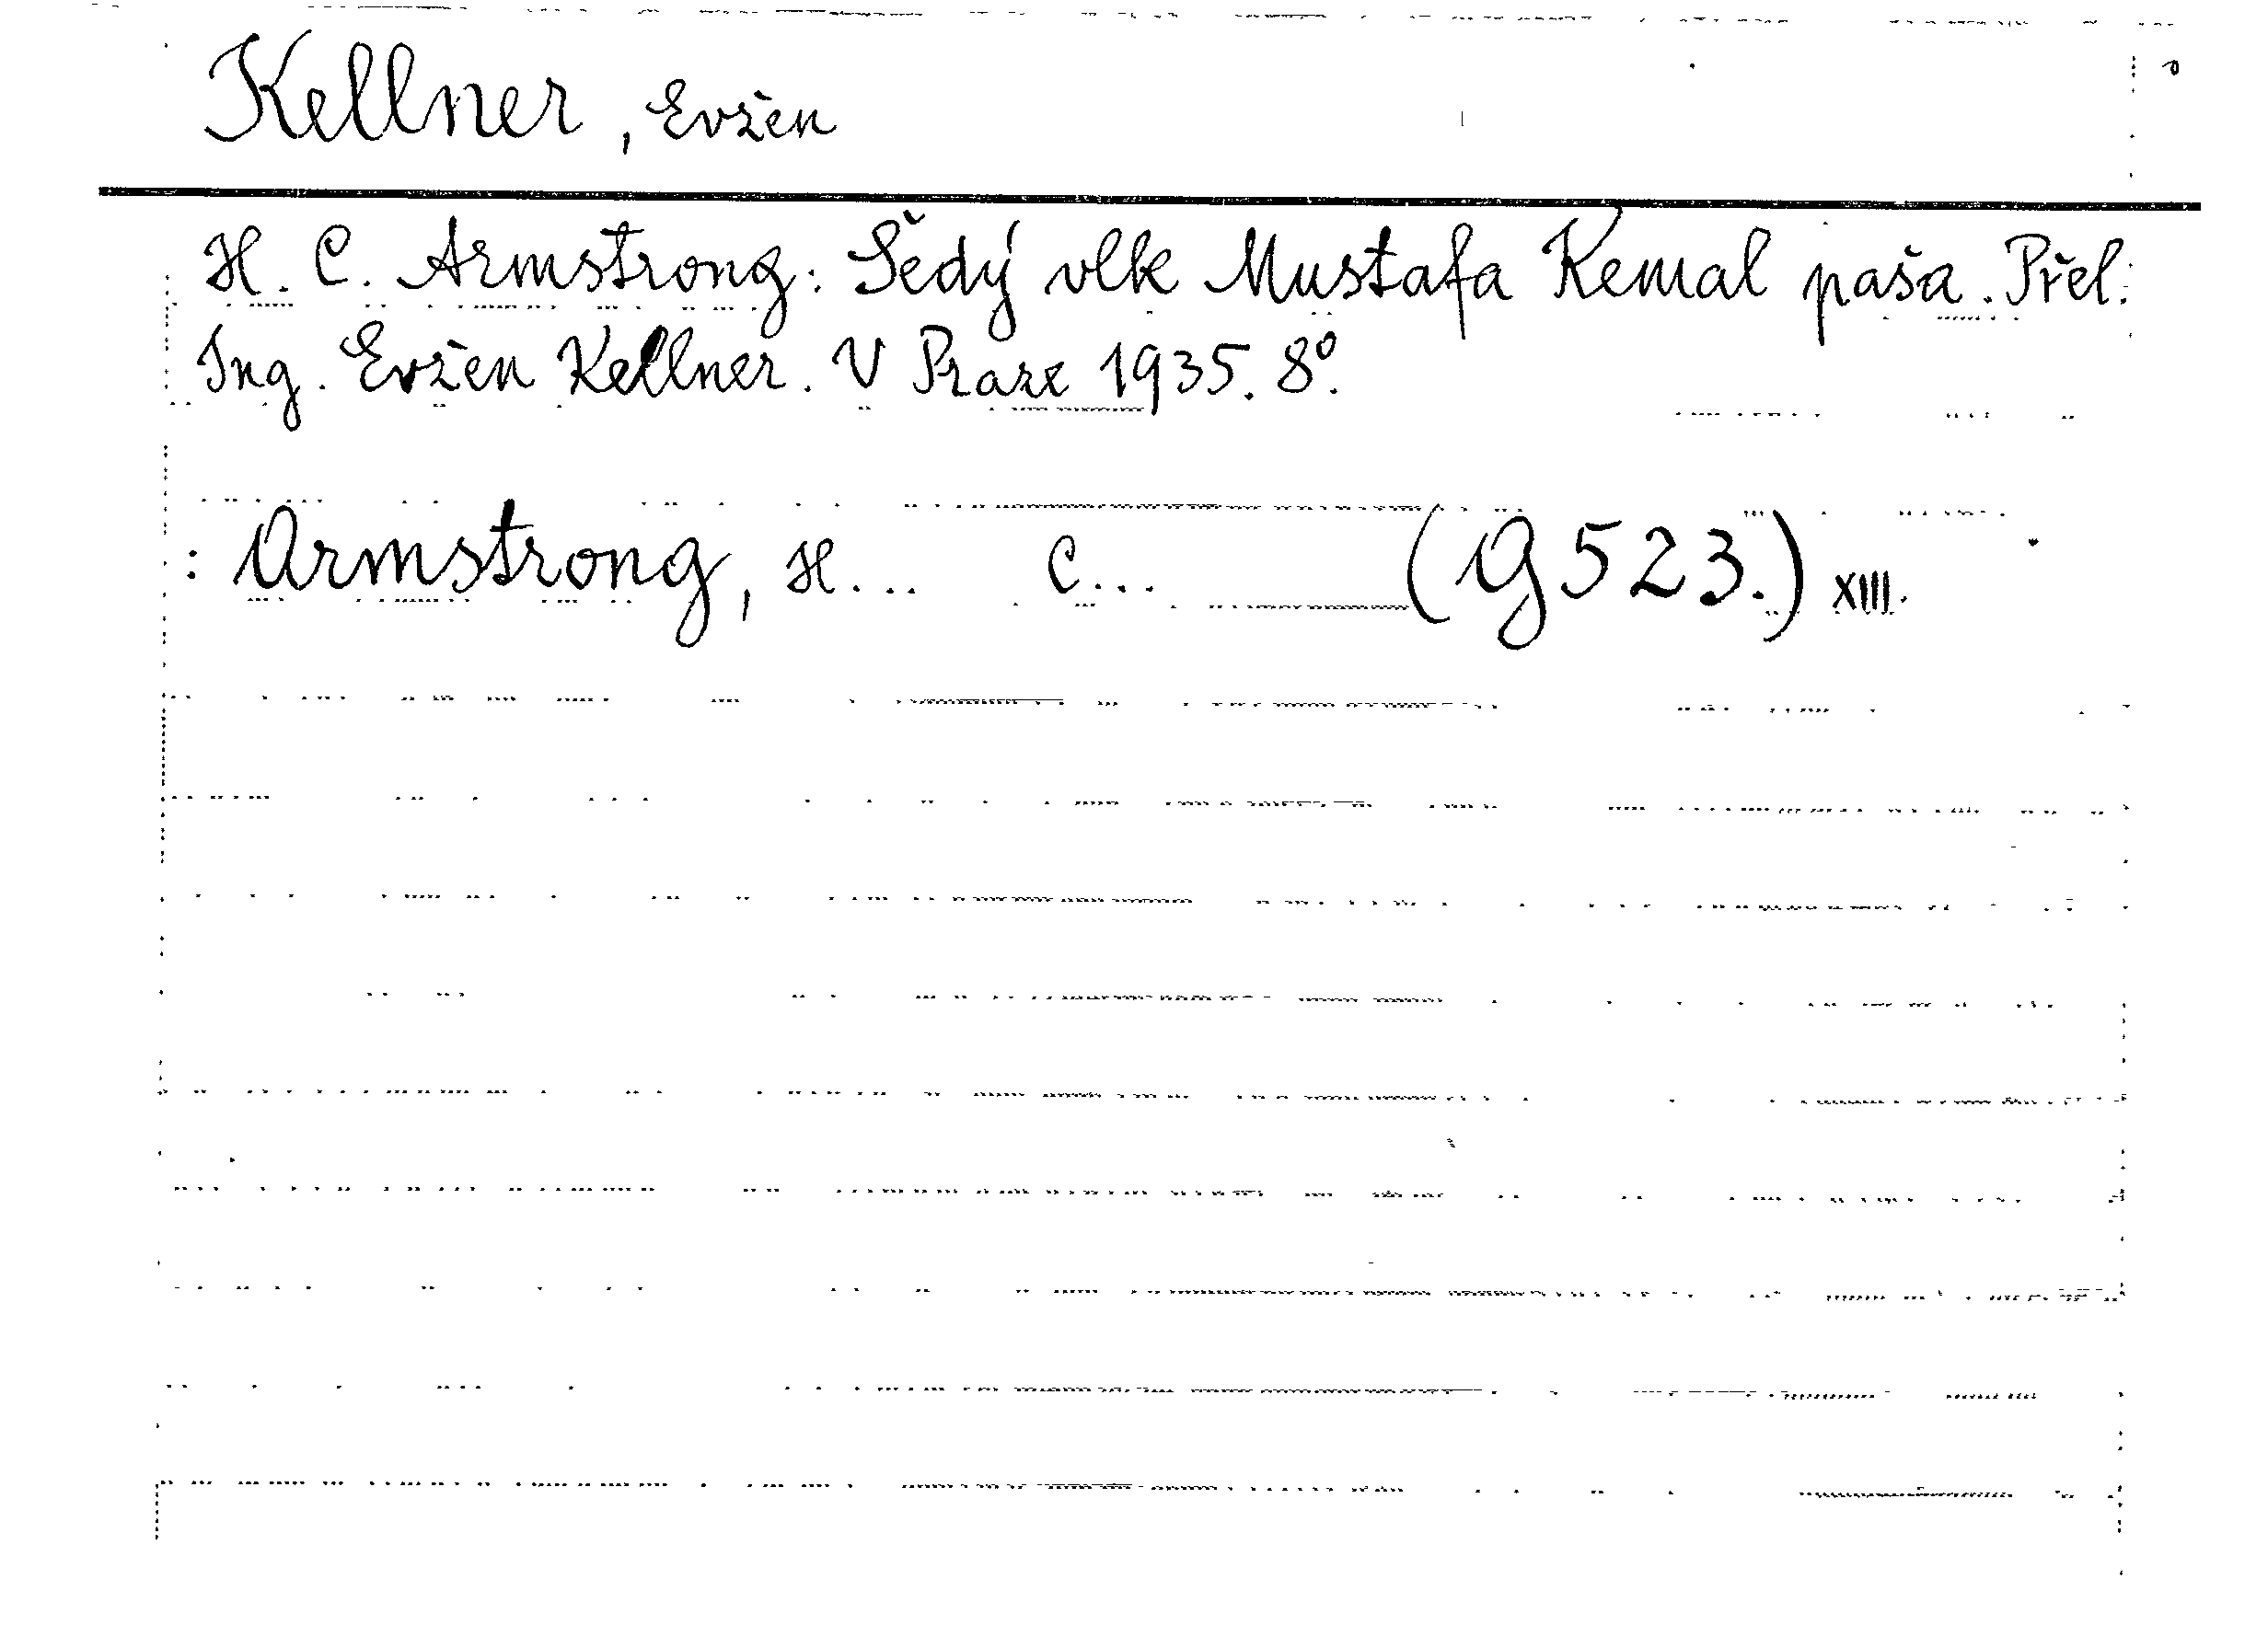 Kellner, Evžen
H. C. Armstrong: Šedý vlk Mustafa Kemal paša. Přel.
Ing. Evžen Kellner. V Praze 1935. 8°.
: Armstrong, H... C... (G 523.) XIII.